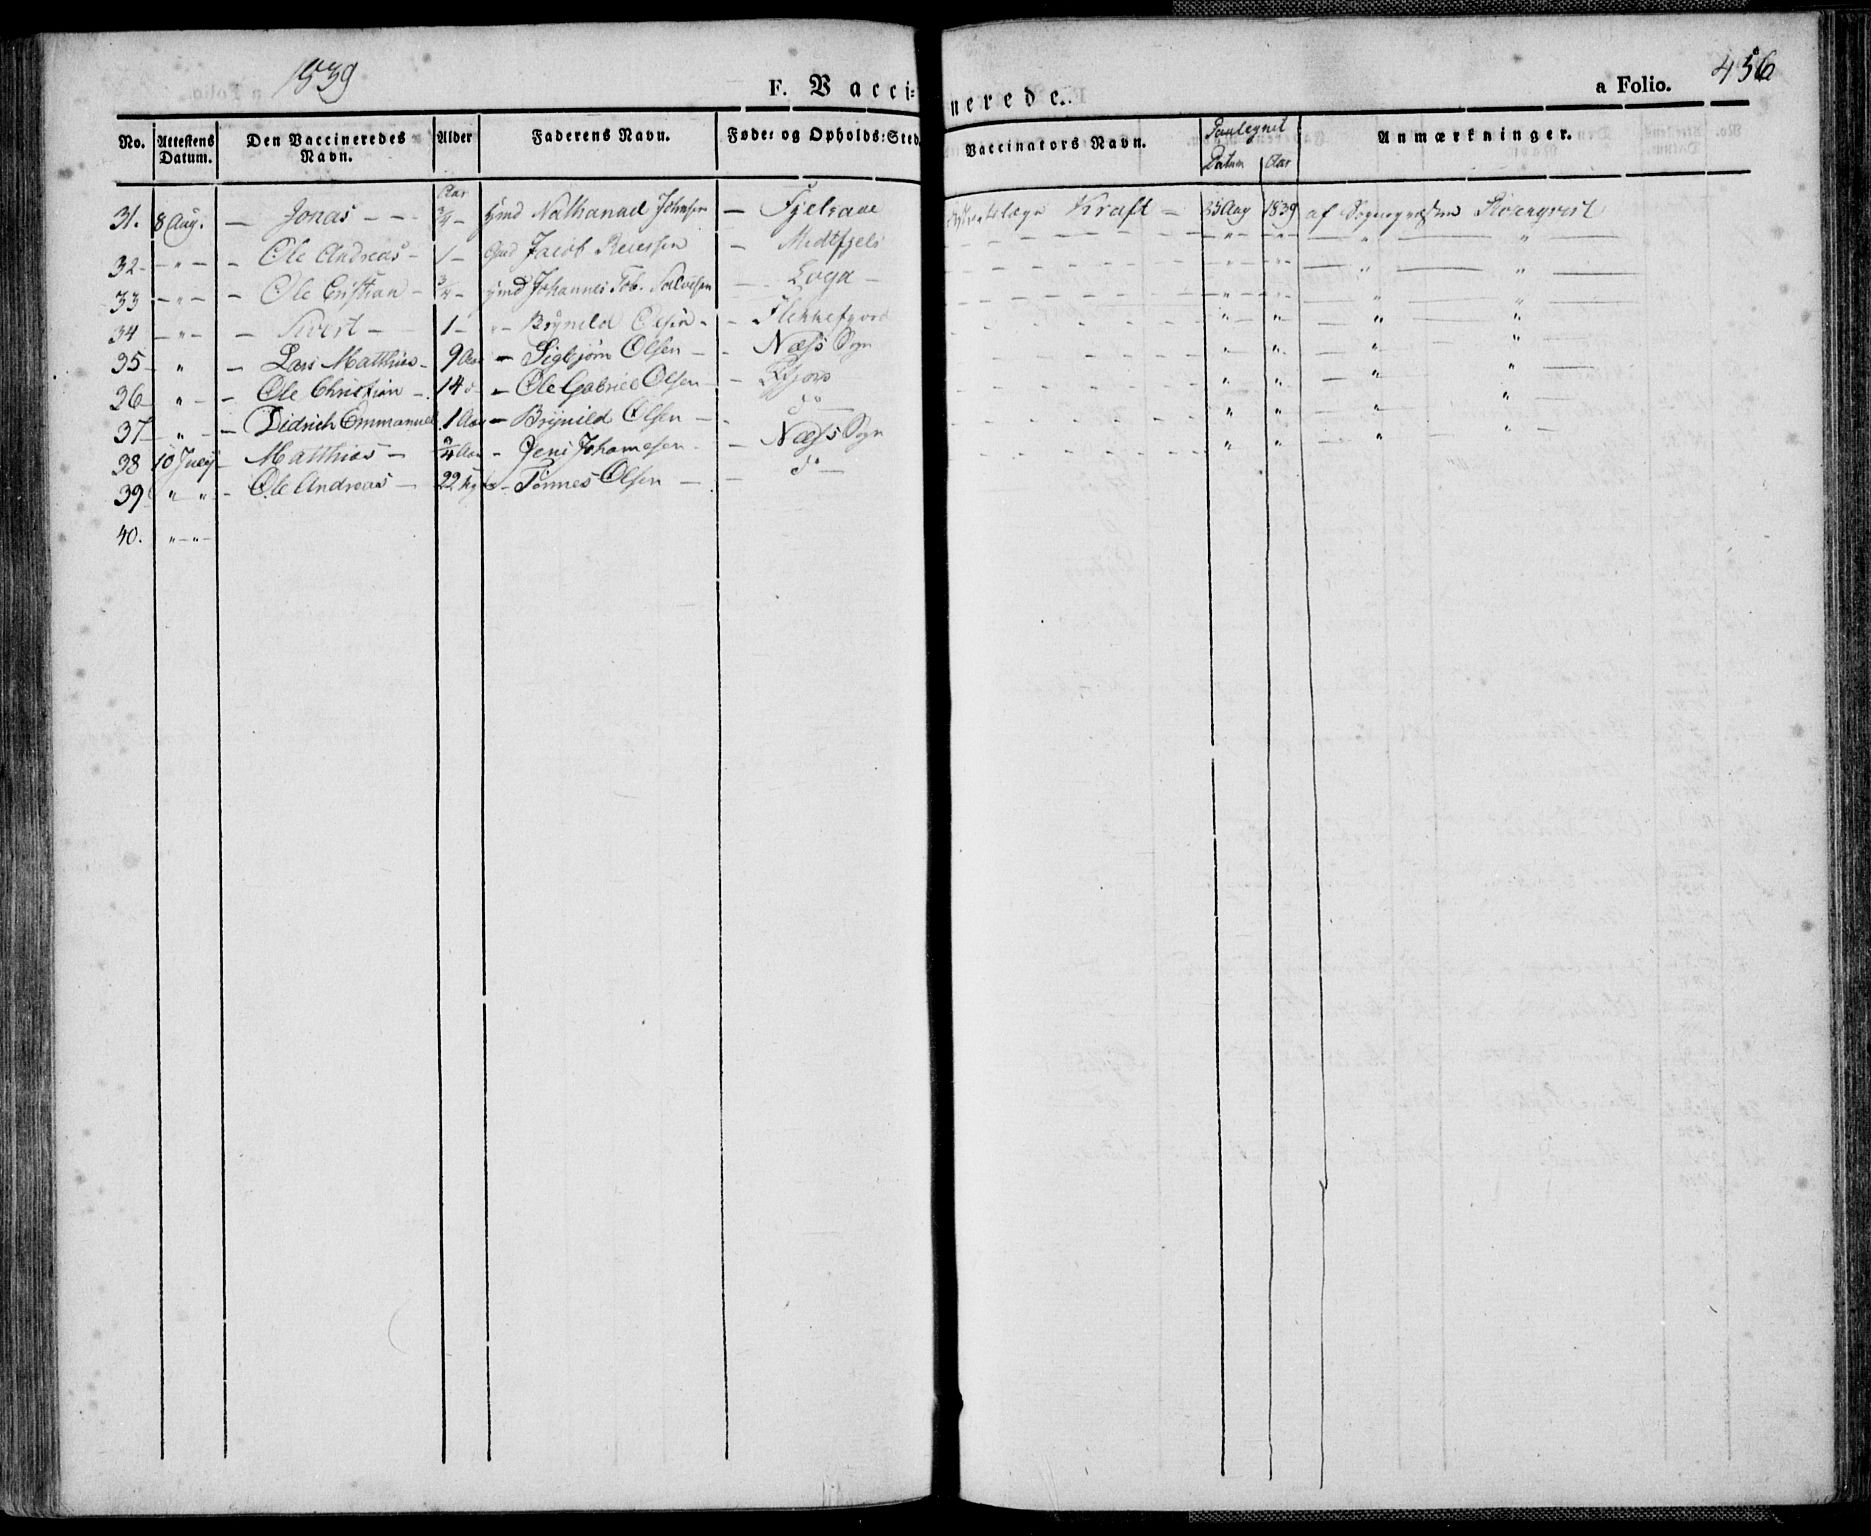 1839
F. Vaccinerede.
a Folio. 456
No. Attestens Datum. Den Vaccineredes Navn. Alder Faderens Navn. Føde: og Opholds: Sted. Vaccinators Navn. Datum Aar Anmærkninger.
Aar
31. 8 Aug. — Jonas — — 3/4 — Nathanael Johnsen — Fjelsaae Kraft — 1839 af
32 — " — — Ole Andreas — 1 — Jacob Reiersen — Midtfjels — " — — " — — " — — " —
33 — " — — Ole Cristian — 3/4 — Johannes Tob. Salvesen — Loga — — " — — " — — " — — " —
34 — " — — Sivert — 1 — " — Brynild Olsen — — Flekkefjord — " — — " — — " — — " —
35 — " — Lars Matthias — 9 Aar — Sigbjørn Olsen — — Næss Sogn " " — " — " —
36 — " — — Ole Christian — 14 d — Ole Gabriel Olsen — — " " — " — " —
37 — " — — Didrich Emmanuel 1 Aar — Brynild Olsen — — do " " — " — " —
38 10 July — Matthias — 3/4 Aar — Jens Johannesen — — Næss Sogn " " — " — " —
39 " " — Ole Andreas — 22 — Tønnes Olsen — — do — " "
40. " — " —